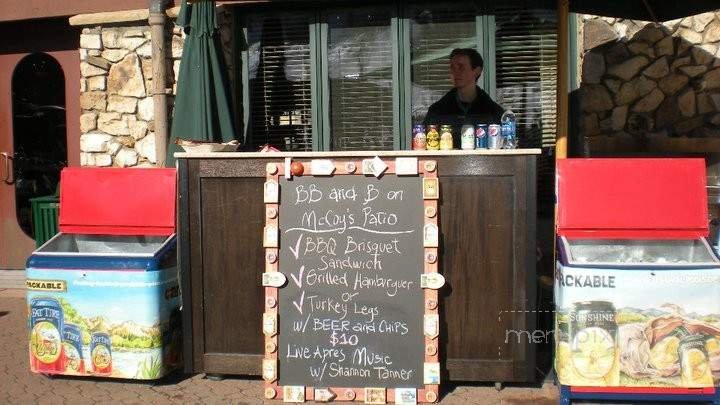 BB and B on
McCoy's Patio
BBQ Brisquet
Sandwich
Grilled Hamburguer
or
Turkey Legs
w/ BEER and CHIPS
$10
Live Apres Music
w/ Shannon Tanner
PACKABLE
FAT TIRE
PACKABLE
SUNSHINE
menupix